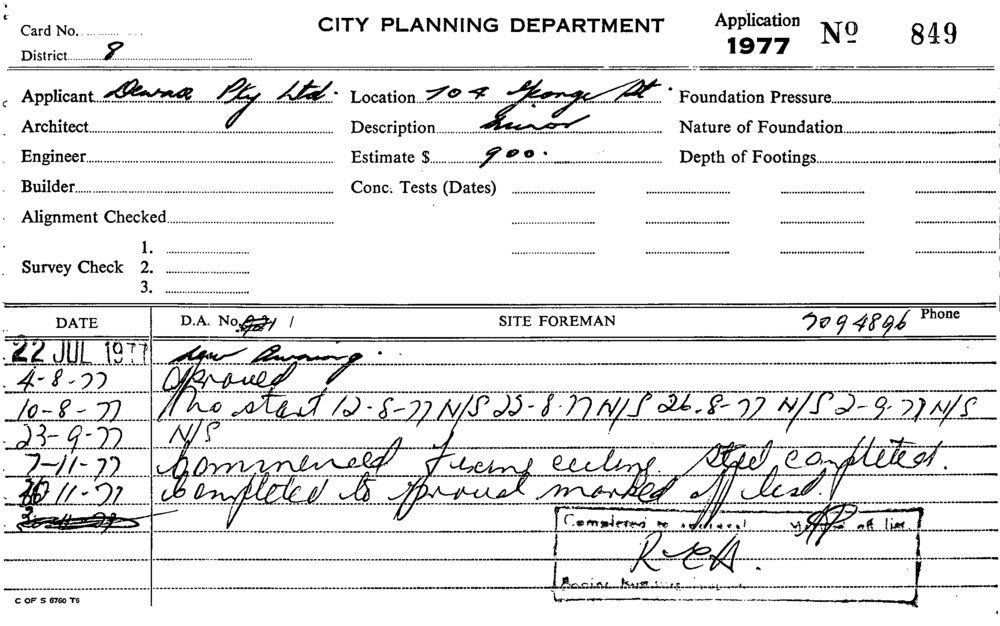 CITY PLANNING DEPARTMENT
Application 1977 Nº 849
Card No.
District 8
Applicant Pty Ltd. Location 704 George St. Foundation Pressure
Architect Description minor Nature of Foundation
Engineer Estimate $ 900. Depth of Footings
Builder Conc. Tests (Dates)
Alignment Checked
1.
Survey Check 2.
3.
DATE D.A. No. / SITE FOREMAN 7094896 Phone
22 JUL 1977 new Awning.
4-8-77 aproved
10-8-77 no start 12-8-77 N/S 23-8-77 N/S 26-8-77 N/S 2-9-77 N/S
23-9-77 N/S
7-11-77 Commenced fixing ceiling. Steel completed.
11-77 Completed to aproval marked off list.
Completed to approval off list
C OF S 6760 T6